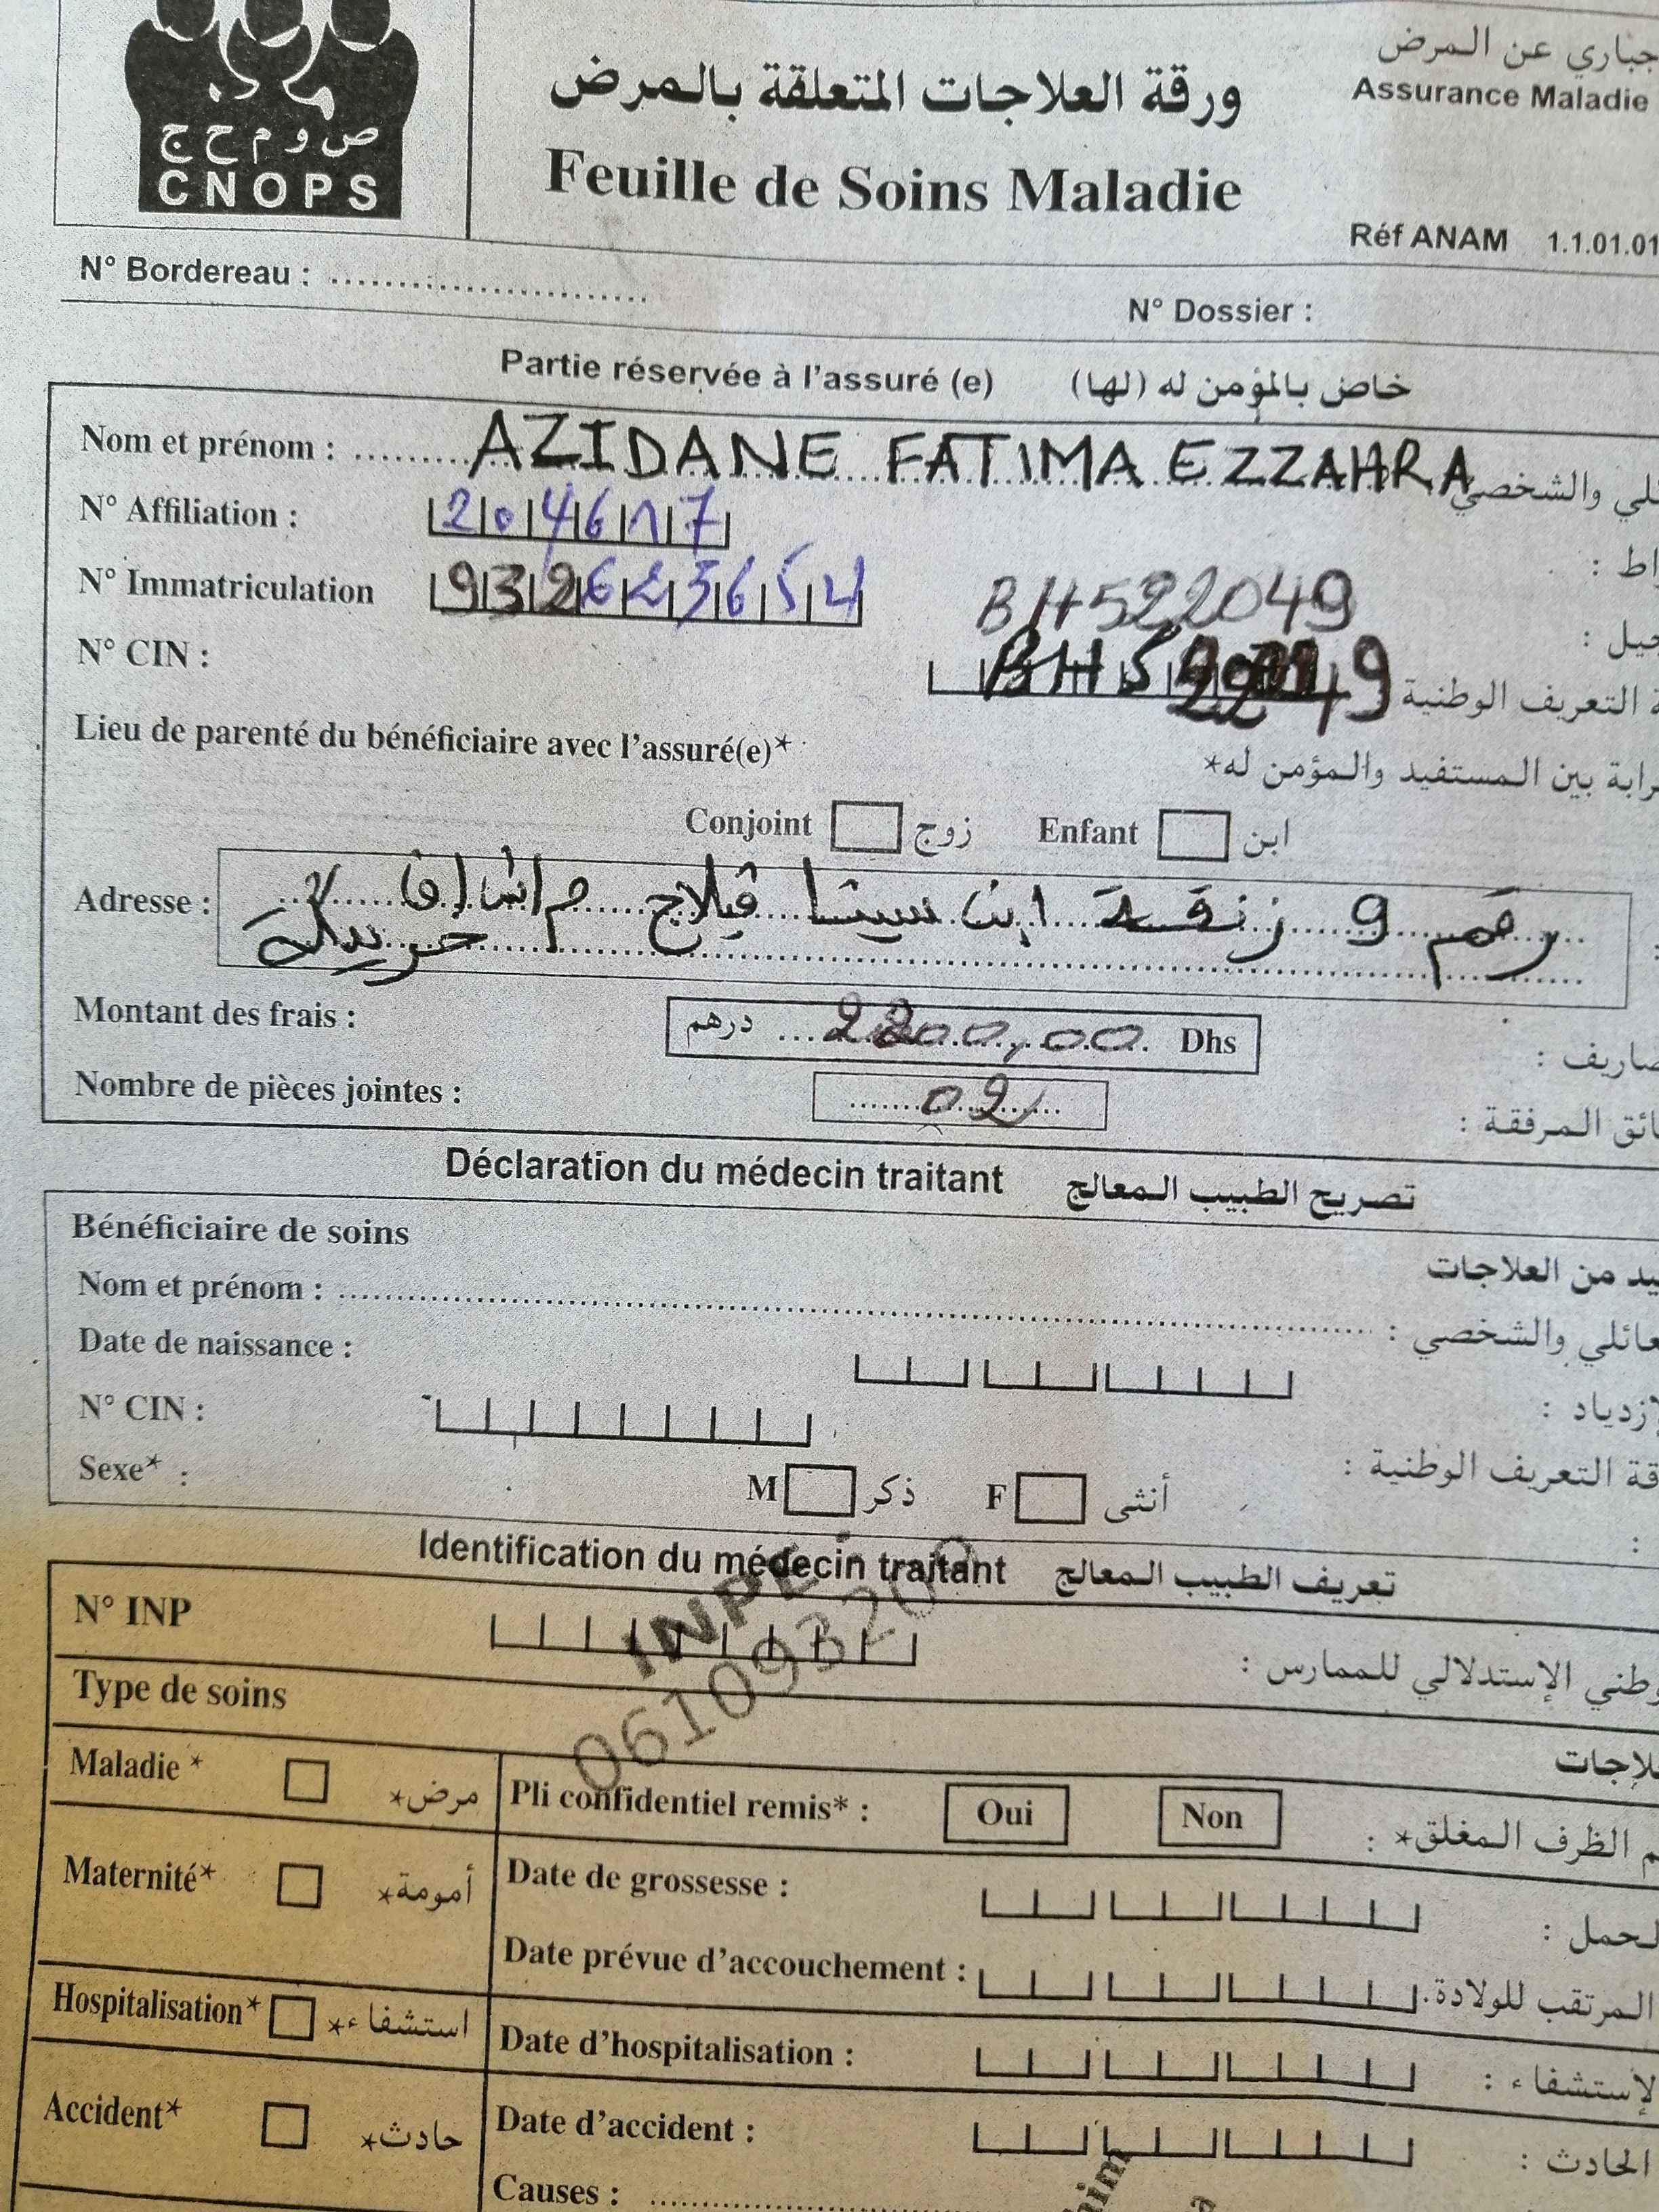 ص و م ح ج
CNOPS
ورقة العلاجات المتعلقة بالمرض
Feuille de Soins Maladie
جباري عن المرض
Assurance Maladie
Réf ANAM 1.1.01.01
N° Bordereau : ........................
N° Dossier :
Partie réservée à l'assuré (e) خاص بالمؤمن له (لها)
Nom et prénom : AZIDANE FATIMA EZZAHRA ئلي والشخصي
N° Affiliation : 2046117 راط :
N° Immatriculation 932625654 BH522049 جيل :
N° CIN : BH5 2249 ة التعريف الوطنية
Lieu de parenté du bénéficiaire avec l'assuré(e)* رابة بين المستفيد والمؤمن له*
Conjoint زوج Enfant ابن
Adresse : رقم 9 زنقة ابن سينا فيلاج
خريبكة
Montant des frais : درهم 2200,00 Dhs صاريف :
Nombre de pièces jointes : 02 ائق المرفقة :
Déclaration du médecin traitant تصريح الطبيب المعالج
Bénéficiaire de soins يد من العلاجات
Nom et prénom : عائلي والشخصي :
Date de naissance : لإزدياد :
N° CIN : قة التعريف الوطنية :
Sexe* : M ذكر F أنثى :
Identification du médecin traitant تعريف الطبيب المعالج
N° INP INPE وطني الإستدلالي للممارس :
Type de soins لاجات
Maladie * مرض* Pli confidentiel remis* : Oui Non م الظرف المغلق* :
Maternité* أمومة* Date de grossesse : لحمل :
Date prévue d'accouchement : المرتقب للولادة.
Hospitalisation* استشفاء* Date d'hospitalisation : لإستشفاء :
Accident* حادث* Date d'accident : الحادث :
Causes :